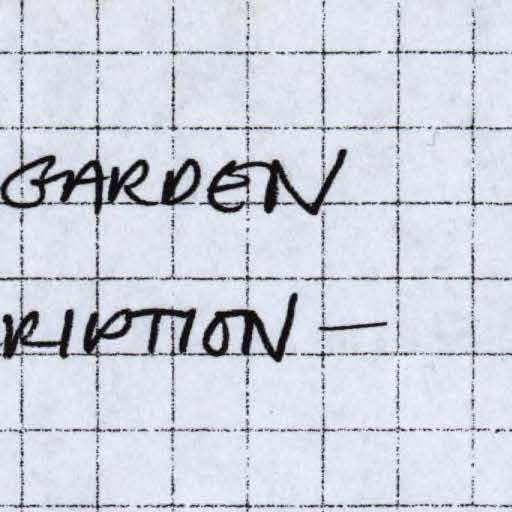 GARDEN
RIPTION —